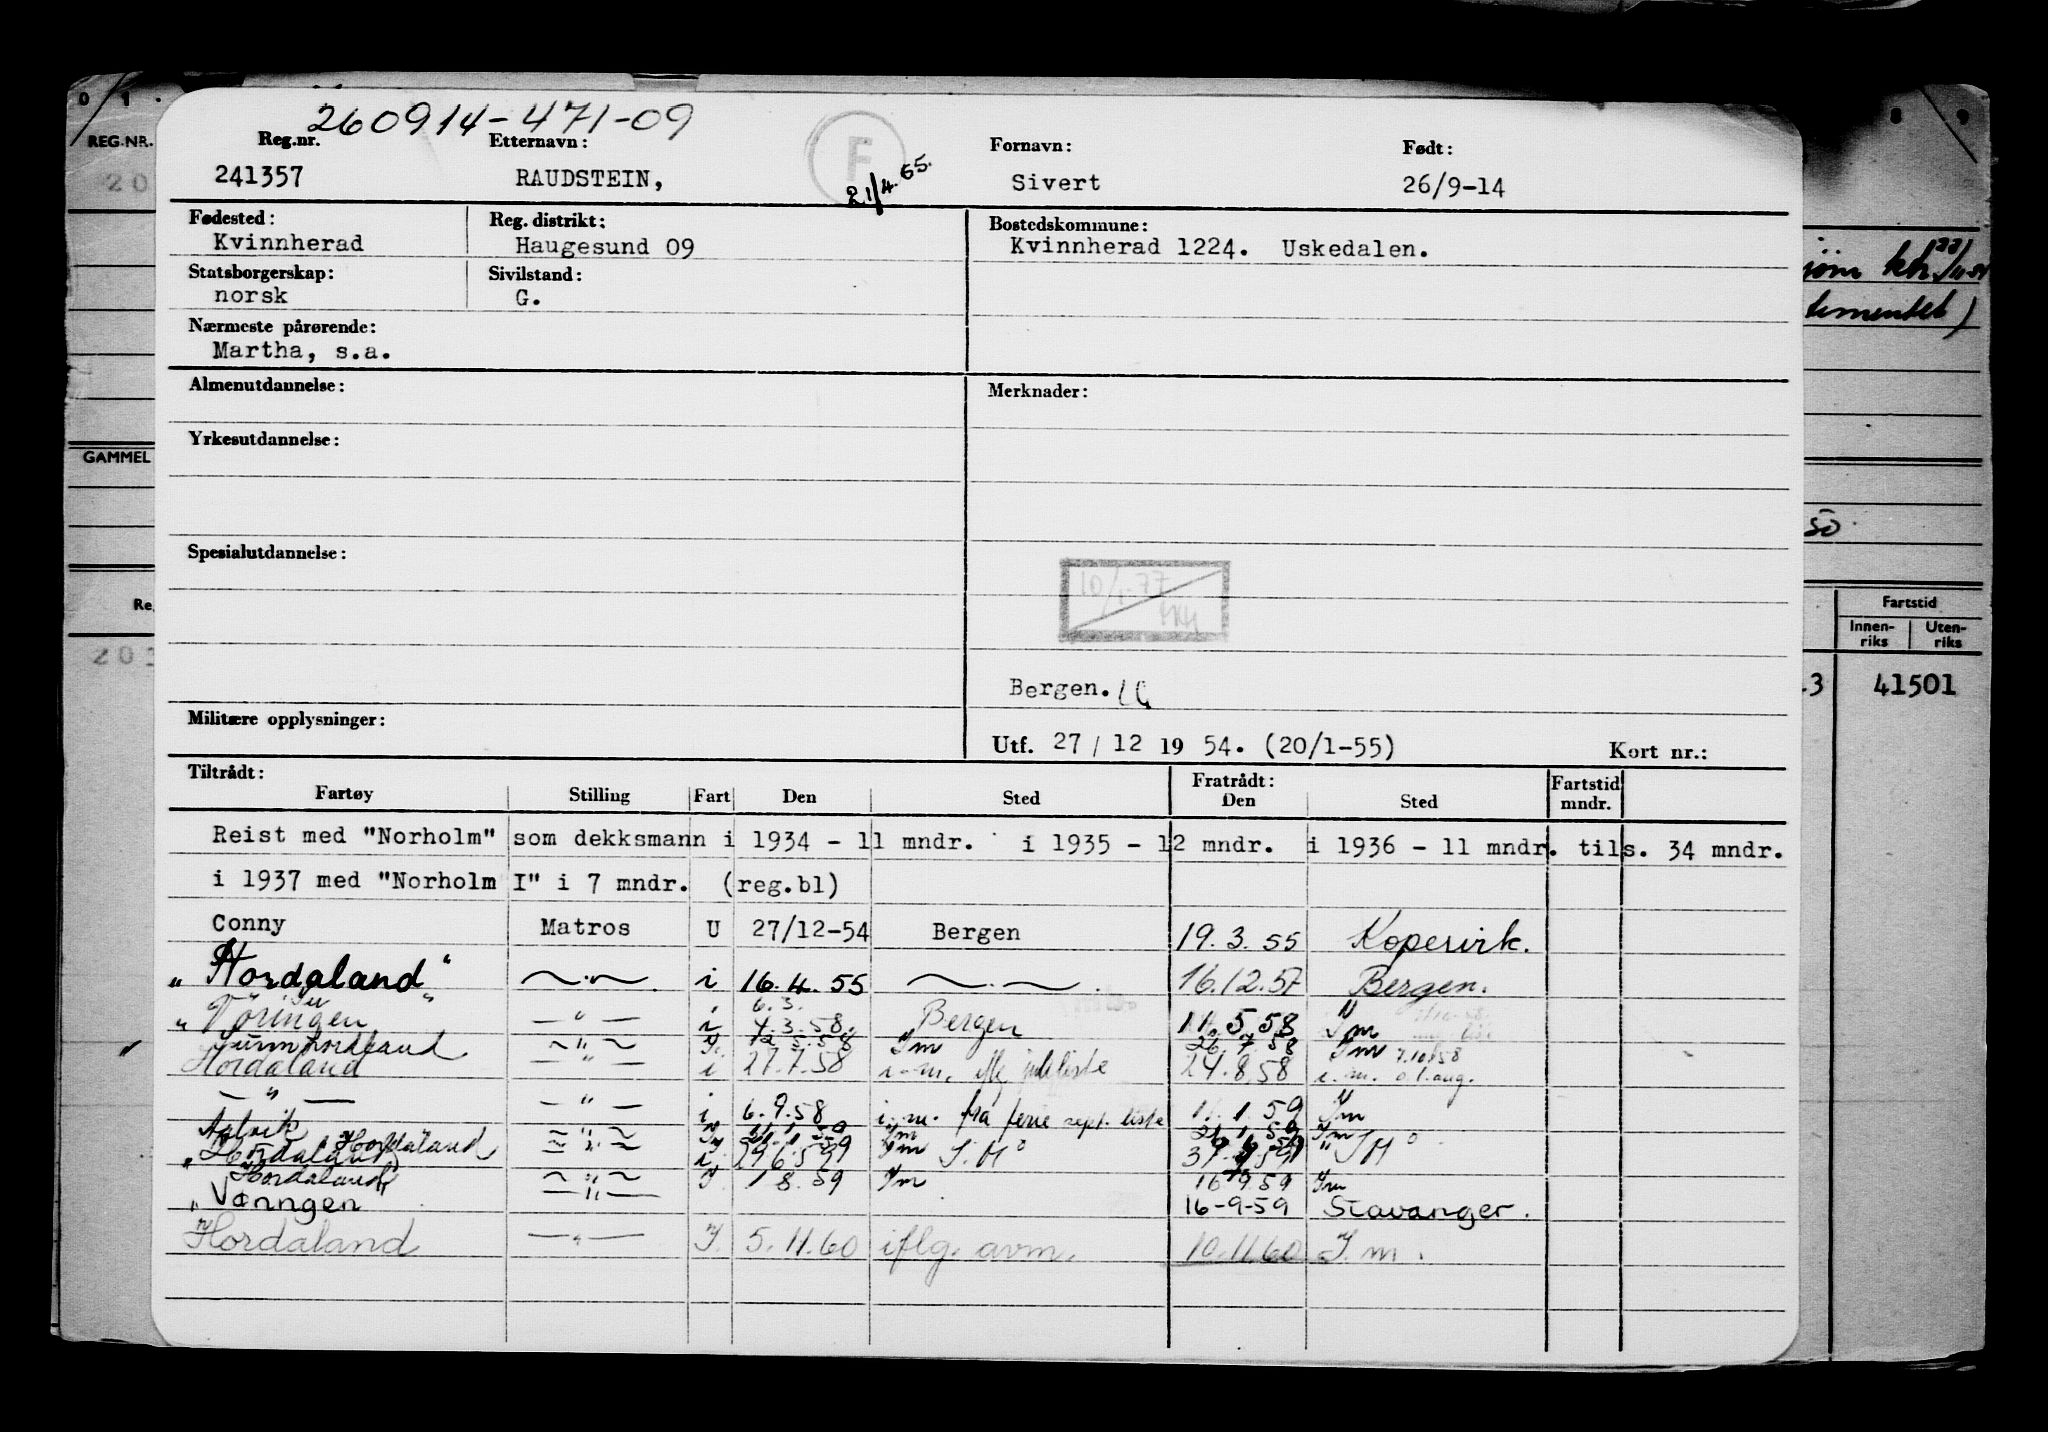 260914-471-09
Reg.nr. Etternavn: Fornavn: Født:
241357 RAUDSTEIN, F 21/4.65. Sivert 26/9-14
Fødested: Reg. distrikt: Bostedskommune:
Kvinnherad Haugesund 09 Kvinnherad 1224. Uskedalen.
Statsborgerskap: Sivilstand:
norsk G.
Nærmeste pårørende:
Martha, s.a.
Almenutdannelse: Merknader:
Yrkesutdannelse:
Spesialutdannelse:
10/1.77
Bergen.
Militære opplysninger:
Utf. 27 / 12 19 54. (20/1-55) Kort nr.:
Tiltrådt: Fratrådt: Fartstid
Fartøy Stilling Fart Den Sted Den Sted mndr.
Reist med "Norholm" som dekksmann i 1934 - 11 mndr. i 1935 - 12 mndr. i 1936 - 11 mndr. tils. 34 mndr.
i 1937 med "Norholm I" i 7 mndr. (reg.bl)
Conny Matros U 27/12-54 Bergen 19.3.55 Kopervik.
"Hordaland" —"— i 16.4.55 —"— 16.12.57 Bergen.
6.3.
"Vøringen" —"— i 4.3.58. Bergen 11.5.58 Im
Sunnhordland ~"~ I. 12.5.58 Im 26.7.58 Im 7.10.58
Hordaland —"— i 27.7.58 i.m. 24.8.58 i.m. aug.
—"— —"— i 6.9.58 i.m. fra ferie sept. liste 11.1.59 Im
Aalvik ~"~ Im 21.1.59 Im
Hordaland
"Hordaland" ~"~ i 29.6.59
Hordaland ~"~ I. 1 8.59 Im 16 9.59 Im
"Væringen —"— 16-9-59 Stavanger.
Hordaland —"— I. 5.11.60 iflg. avm. 10.11.60 I.m.
0 1
REG.NR.
20
GAMMEL
Re
20
8 9
tementet)
50
Fartstid
Innen-riks Uten-riks
3 41501